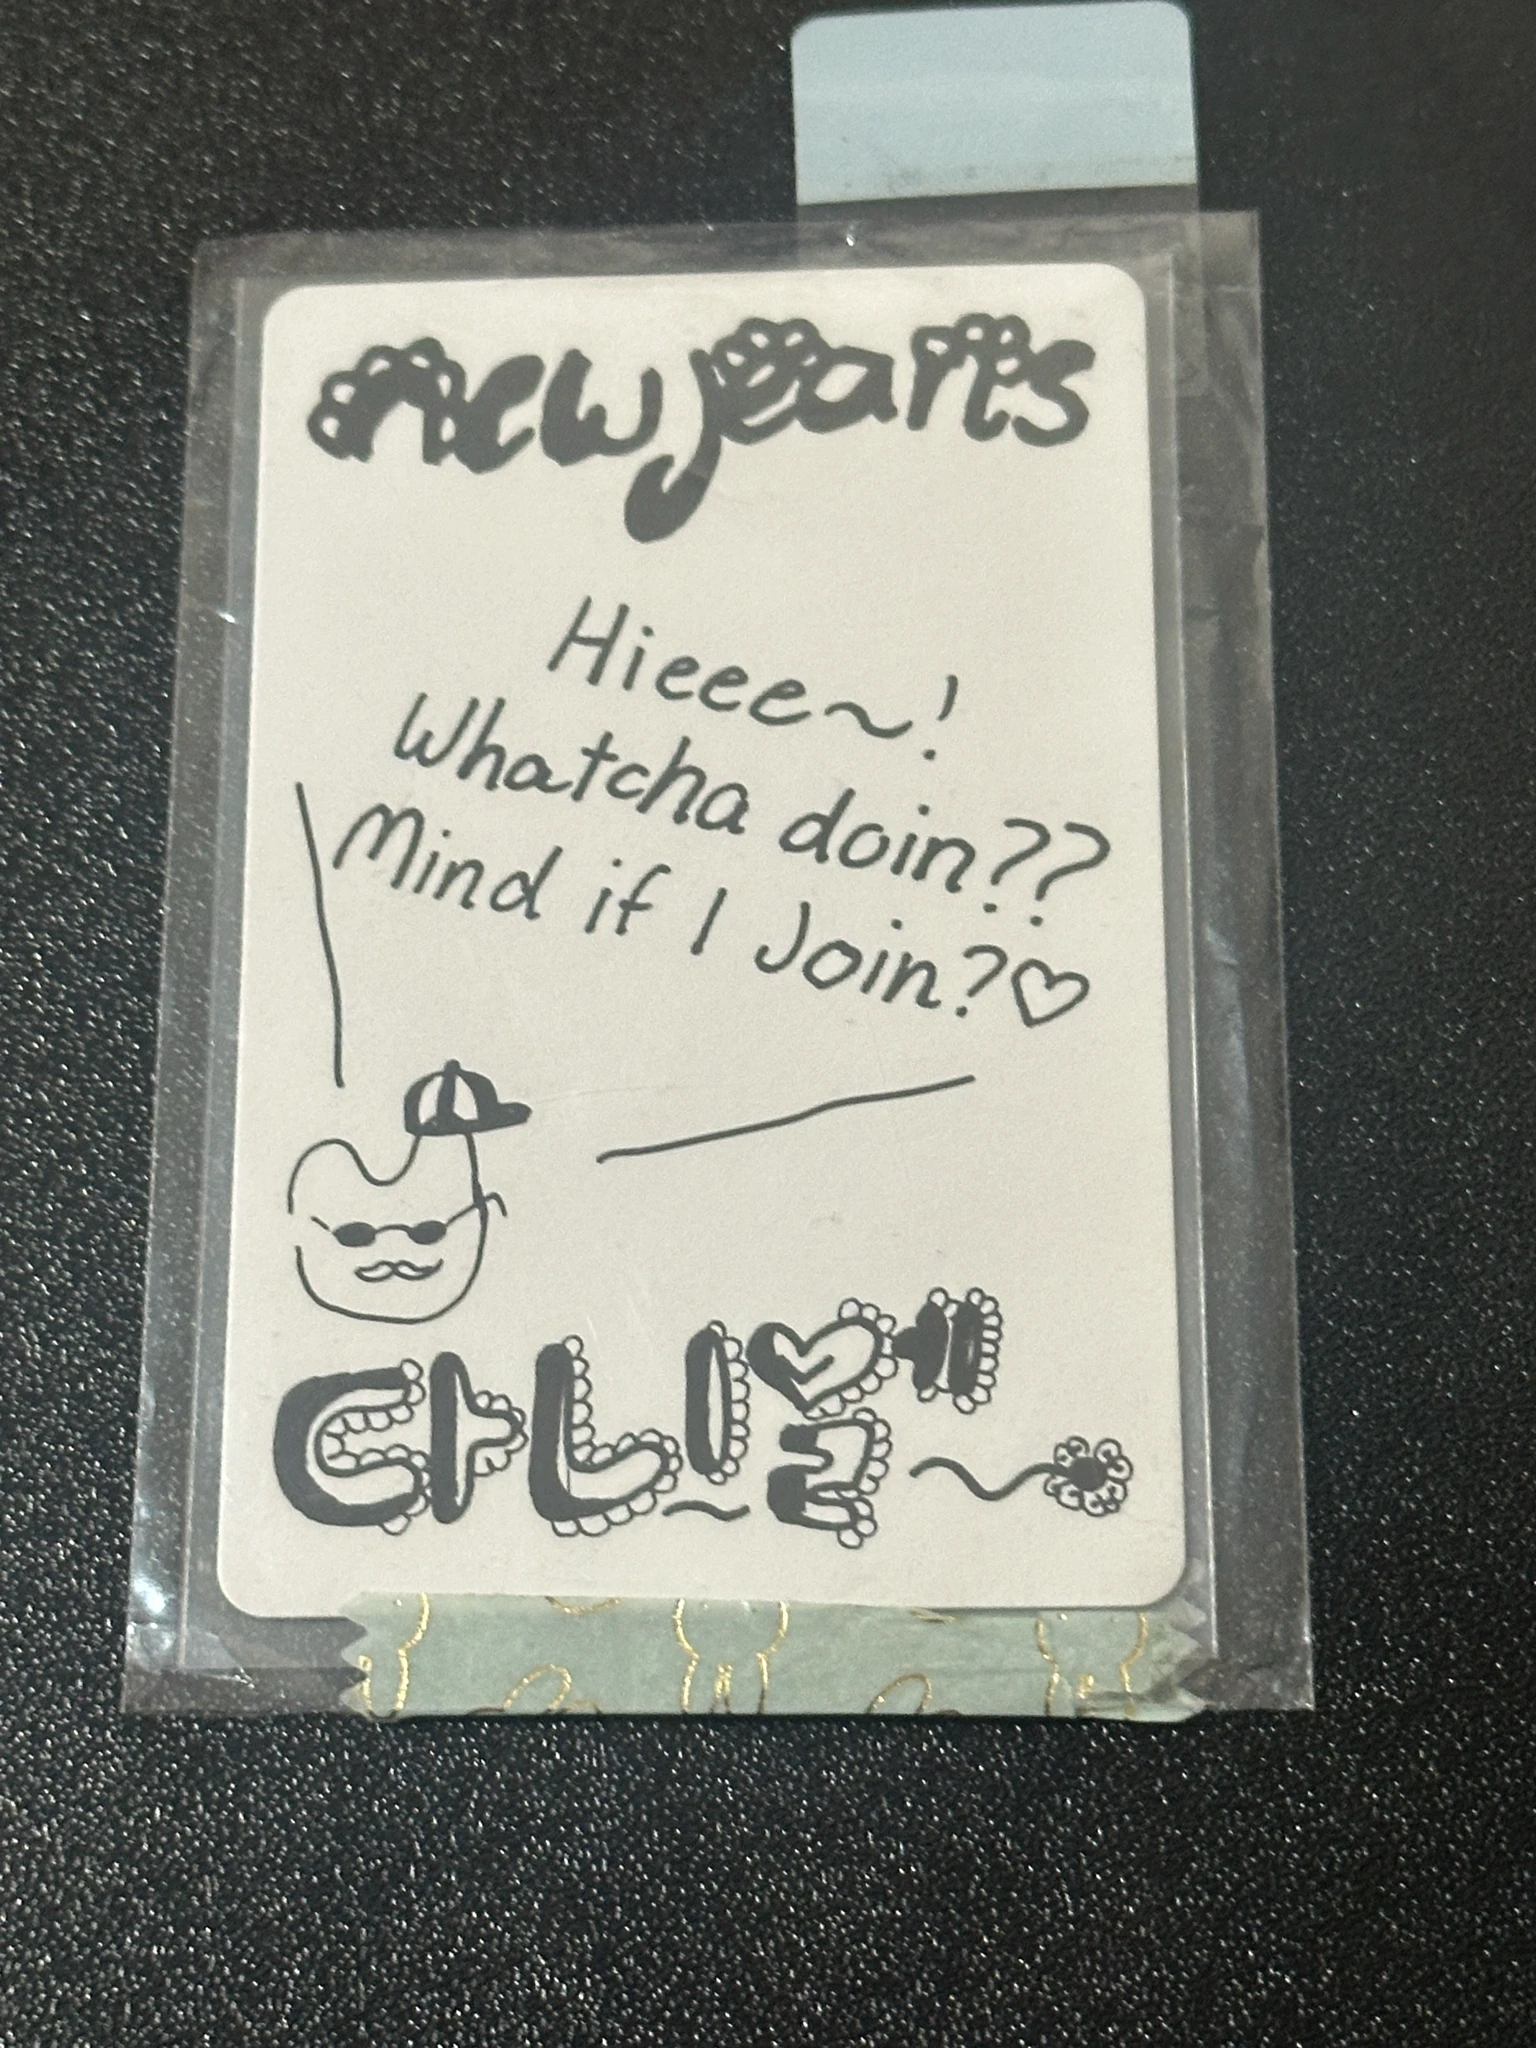 newjeans
Hieee~!
Whatcha doin??
Mind if I Join?♡
다니엘~